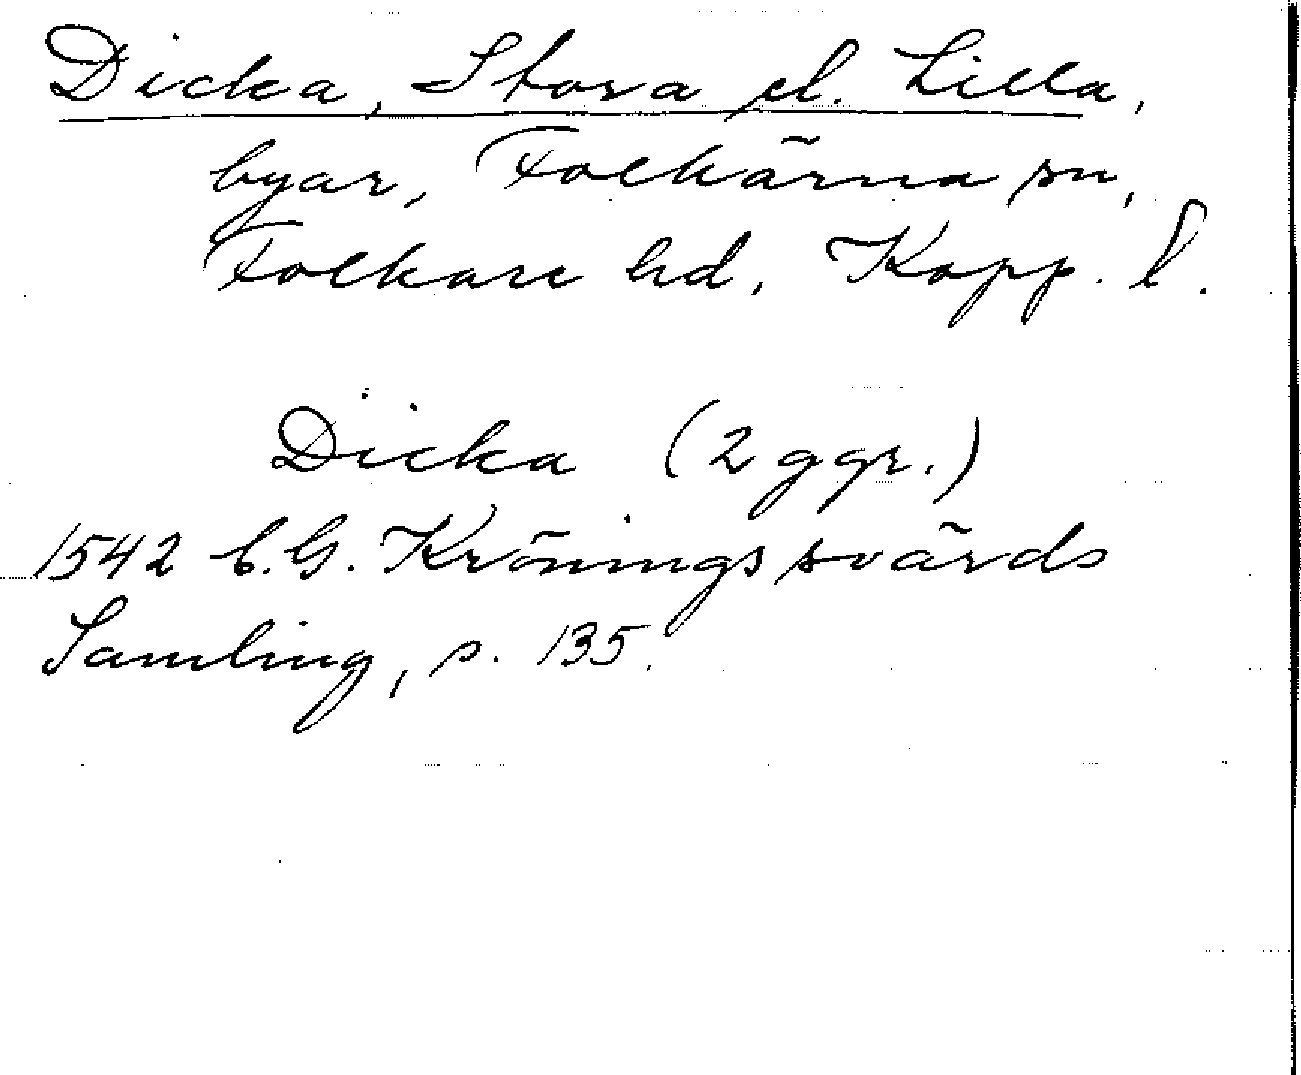 Dicka, Stora el. Lilla,
byar, Folkärna sn,
Folkare hd, Kopp. l.
Dicka (2 ggr.)
1542 C.G. Kröningssvärds
Samling, s. 135.